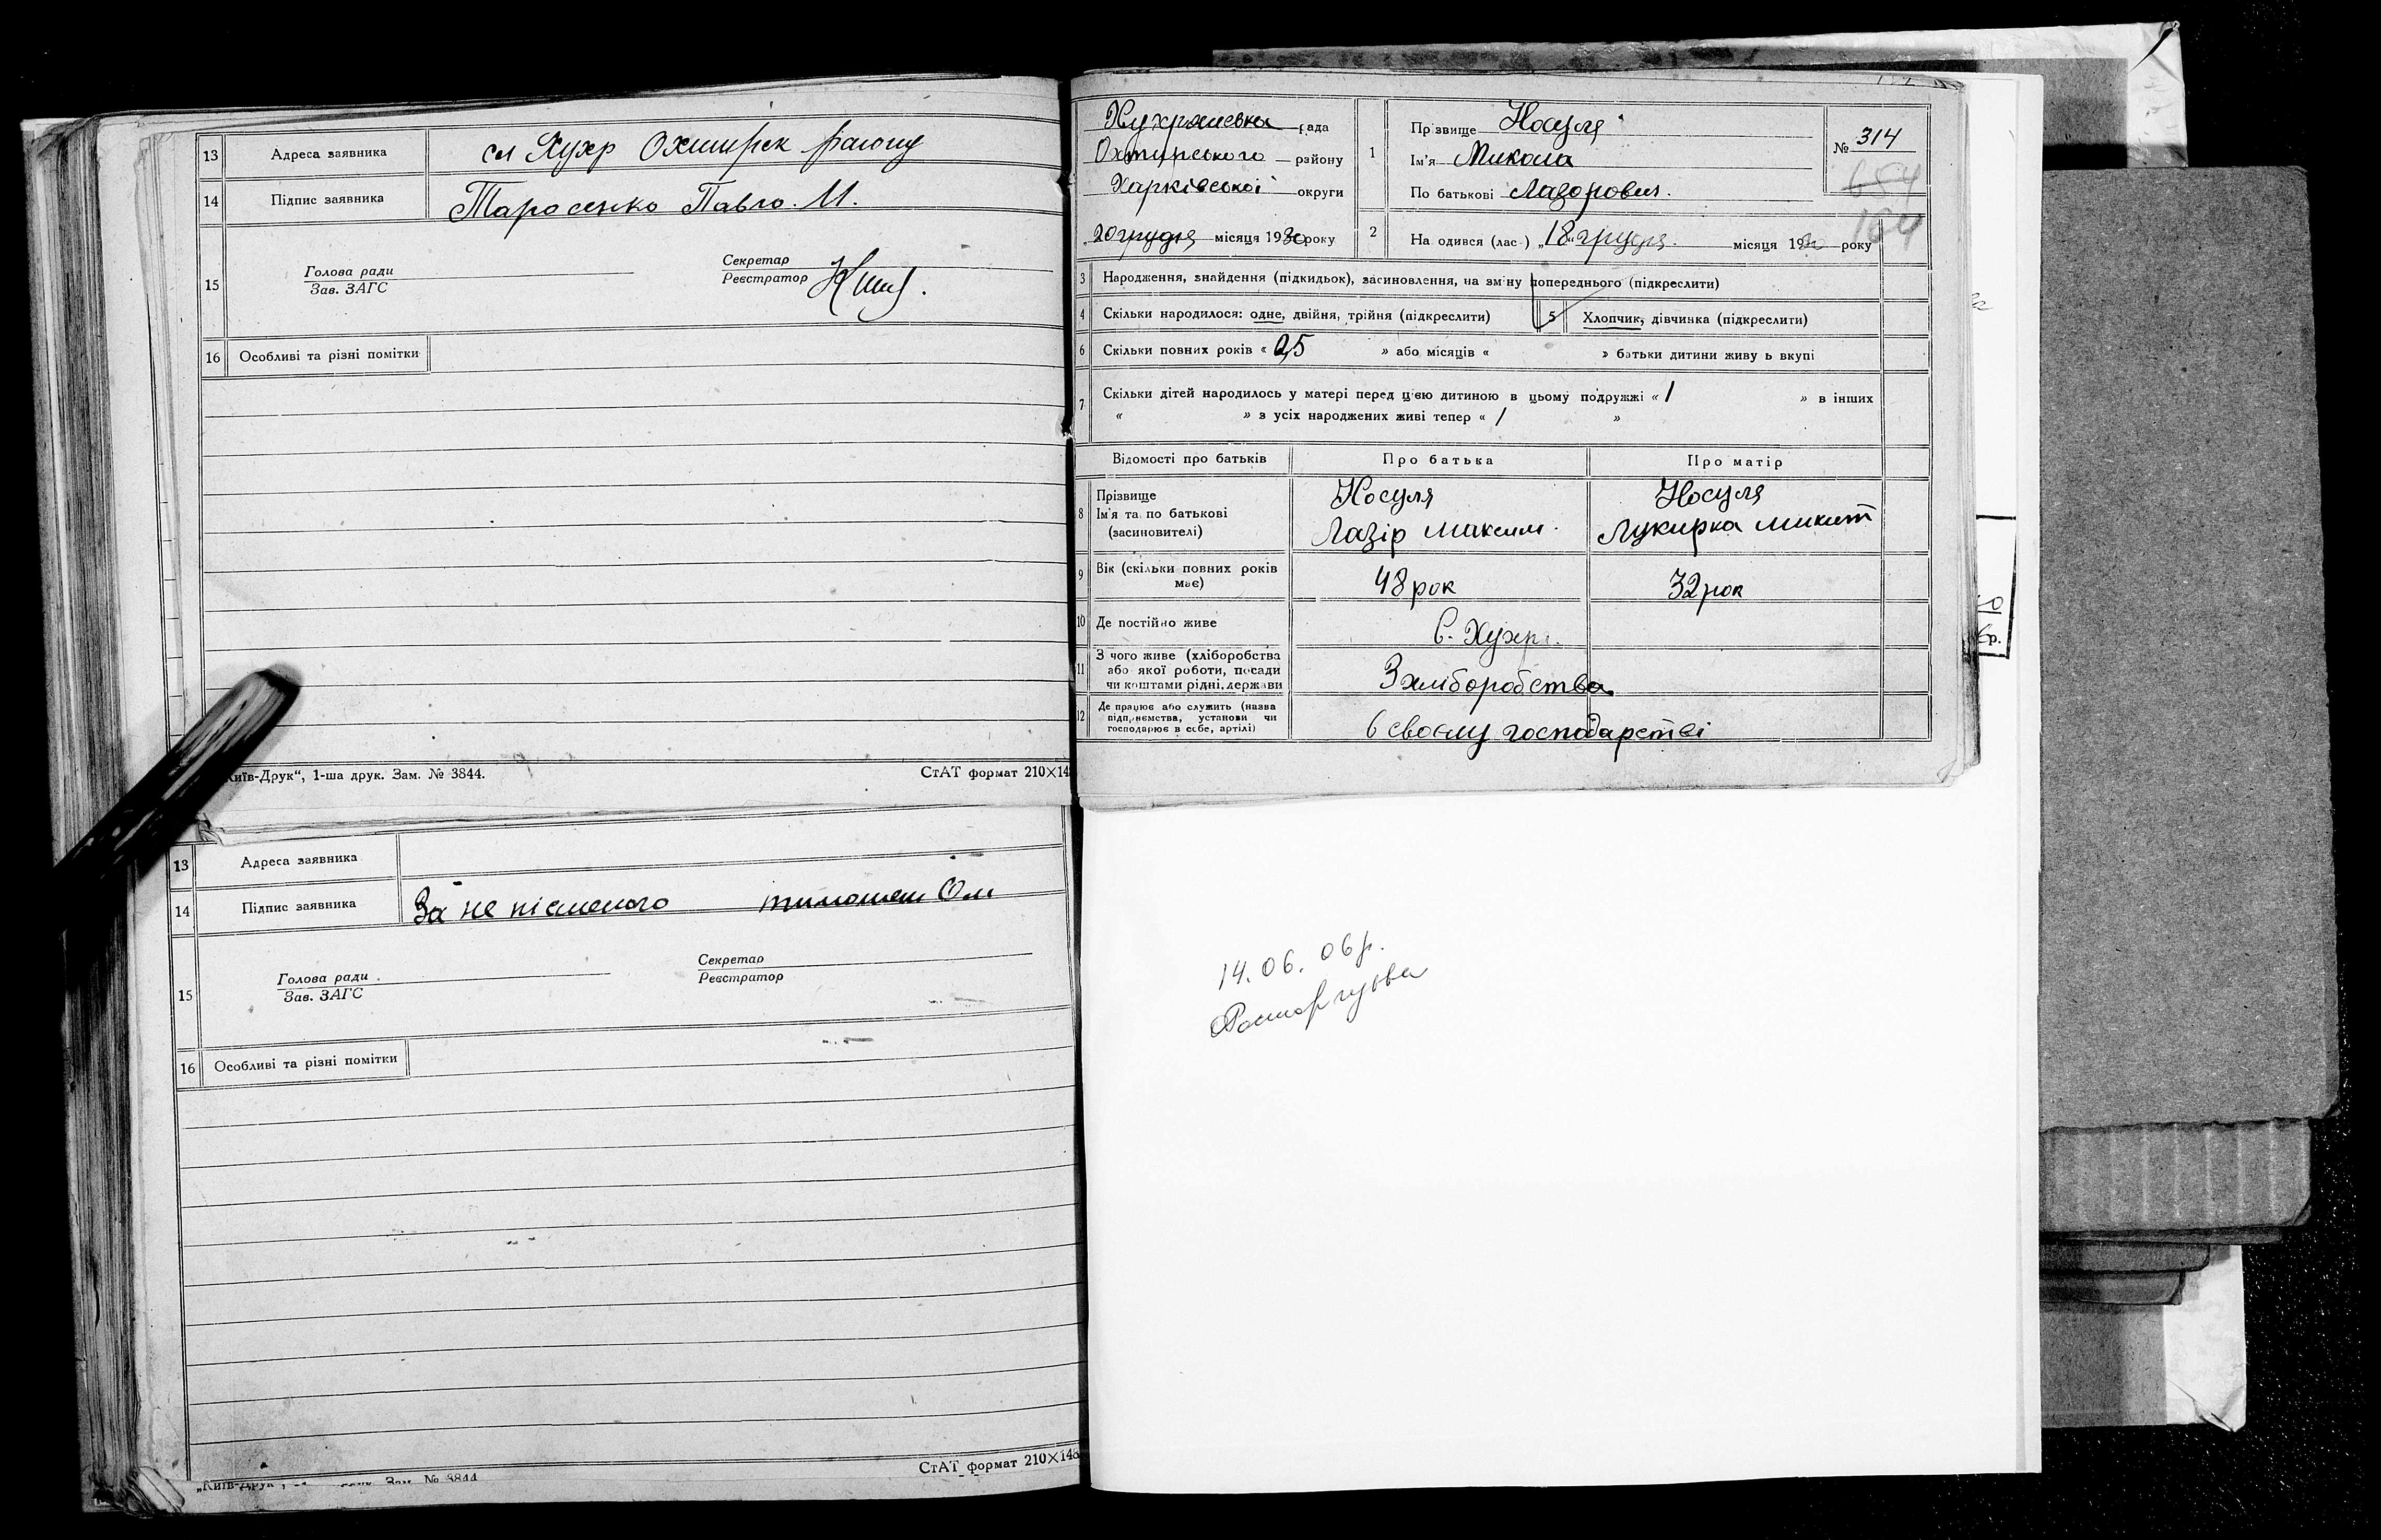 13 Адреса заявника сл Хухр Охтирск району
14 Підпис заявника Тарасенко Павло. И.
15 Голова ради
Зав. ЗАГС
Секретар
Реєстратор
16 Особливі та різні помітки
Київ-Друк“, 1-ша друк. Зам. № 3844.
СтАТ формат 210×14
13 Адреса заявника
14 Підпис заявника За не písменого
15 Голова ради
Зав. ЗАГС
Секретар
Реєстратор
16 Особливі та різні помітки
„Київ-Друк“, друк. Зам. № 3844
СтАТ формат 210×148
рада
Охтирського району
Харківської округи
„20 грудня місяця 1930 року
1 Прізвище Носуля
Ім'я Микола
По батькові Лазорович.
№ 314
654
164
2 На одився (лас-) „18„ грудня. місяця 1930 року
3 Народження, знайдення (підкидьок), засиновлення, на зміну попереднього (підкреслити)
4 Скільки народилося: одне, двійня, трійня (підкреслити)
5 Хлопчик, дівчинка (підкреслити)
6 Скільки повних років « 25 » або місяців « » батьки дитини живуть вкупі
7 Скільки дітей народилось у матері перед цією дитиною в цьому подружжі « 1 » в інших
« » з усіх народжених живі тепер « 1 »
Відомості про батьків Про батька Про матір
8 Прізвище
Ім'я та по батькові
(засиновителі)
Носуля
Лазір Максим.
Носуля
Лукирка Микит
9 Вік (скільки повних років має) 48 рок 32 рок
10 Де постійно живе С. Хухр.
11 З чого живе (хліборобства
або якої роботи, посади
чи коштами рідні, держави
З хліборобства
12 Де працює або служить (назва
підприємства, установи чи
господарює в себе, артілі)
В своєму господарстві
14.06.06р.